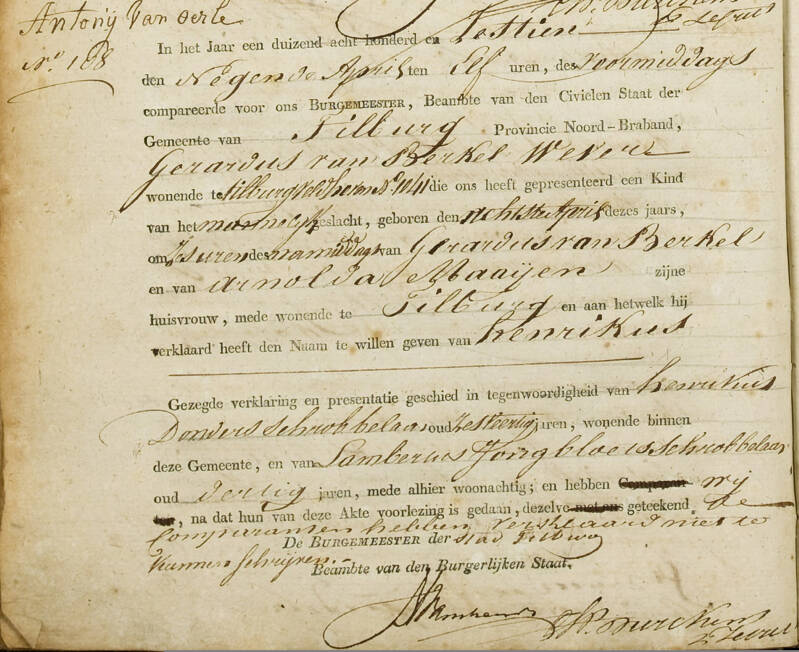 Antonij Van oerle
n.º 108
In het Jaar een duizend acht honderd en Zestien
den Negende April ten Elf uren, des voormiddags
compareerde voor ons BURGEMEESTER, Beambte van den Civielen Staat der
Gemeente van Tilburg Provincie Noord-Braband,
Gerardus van Berkel Wever
wonende te tilburg veldhoven Nº 1041 die ons heeft gepresenteerd een Kind
van het mannelijk geslacht, geboren den achtste April dezes jaars,
om uren des namiddags van Gerardus van Berkel
en van Arnolda Maaijen zijne
huisvrouw, mede wonende te Tilburg en aan hetwelk hij
verklaard heeft den Naam te willen geven van henrikus
Gezegde verklaring en presentatie geschied in tegenwoordigheid van henrikus
Donders Schrobbelaar oud jaren, wonende binnen
deze Gemeente, en van Lambertus Jongbloets schrobbelaar
oud dertig jaren, mede alhier woonachtig; en hebben wij
, na dat hun van deze Akte voorlezing is gedaan, dezelve met ons geteekend de
Comparanten hebben verklaard niet te
De BURGEMEESTER der stad Tilburg
kunnen schrijven.
Beambte van den Burgerlijken Staat.